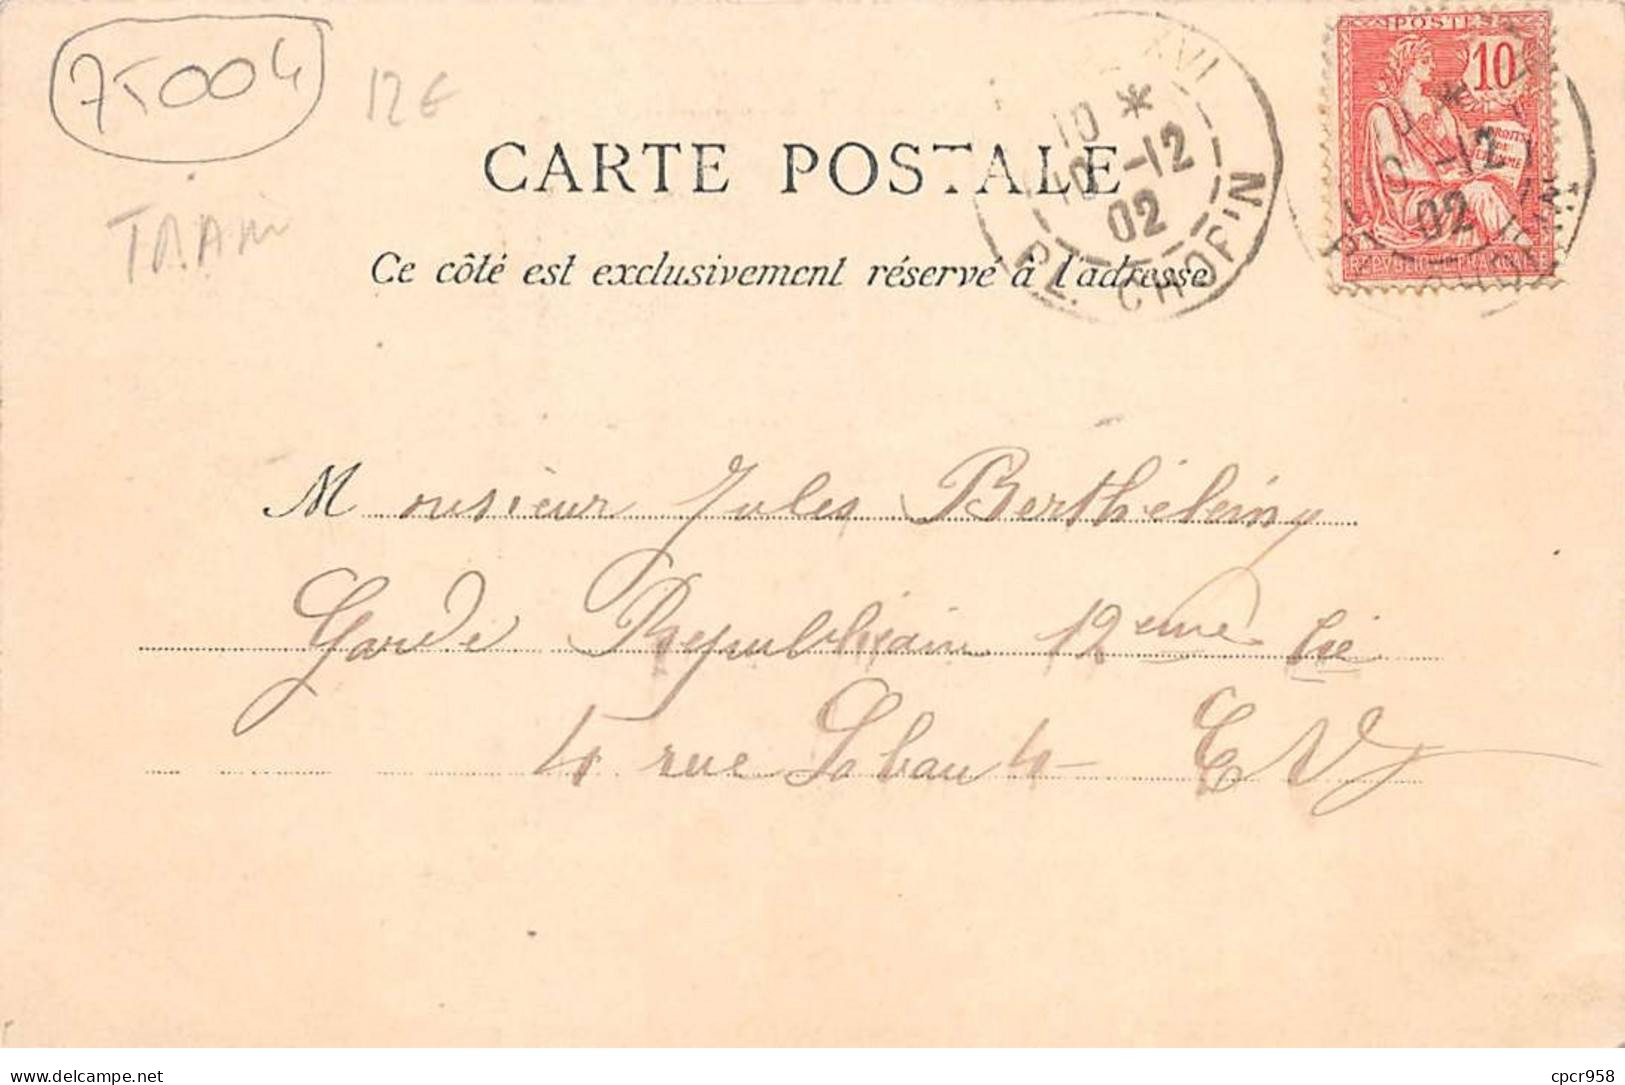 75004
12€
TRAM
CARTE POSTALE
Ce côté est exclusivement réservé à l'adresse
XVI
10 *
10 -12
02
PL. CHOPIN
POSTES
10
DROITS
DE
L'HOMME
-12
02
Monsieur Jules Berthéleiny
Garde Républicain 12eme Cie
4 rue Lobau 4 E V
Delcampe.net
cpcr958